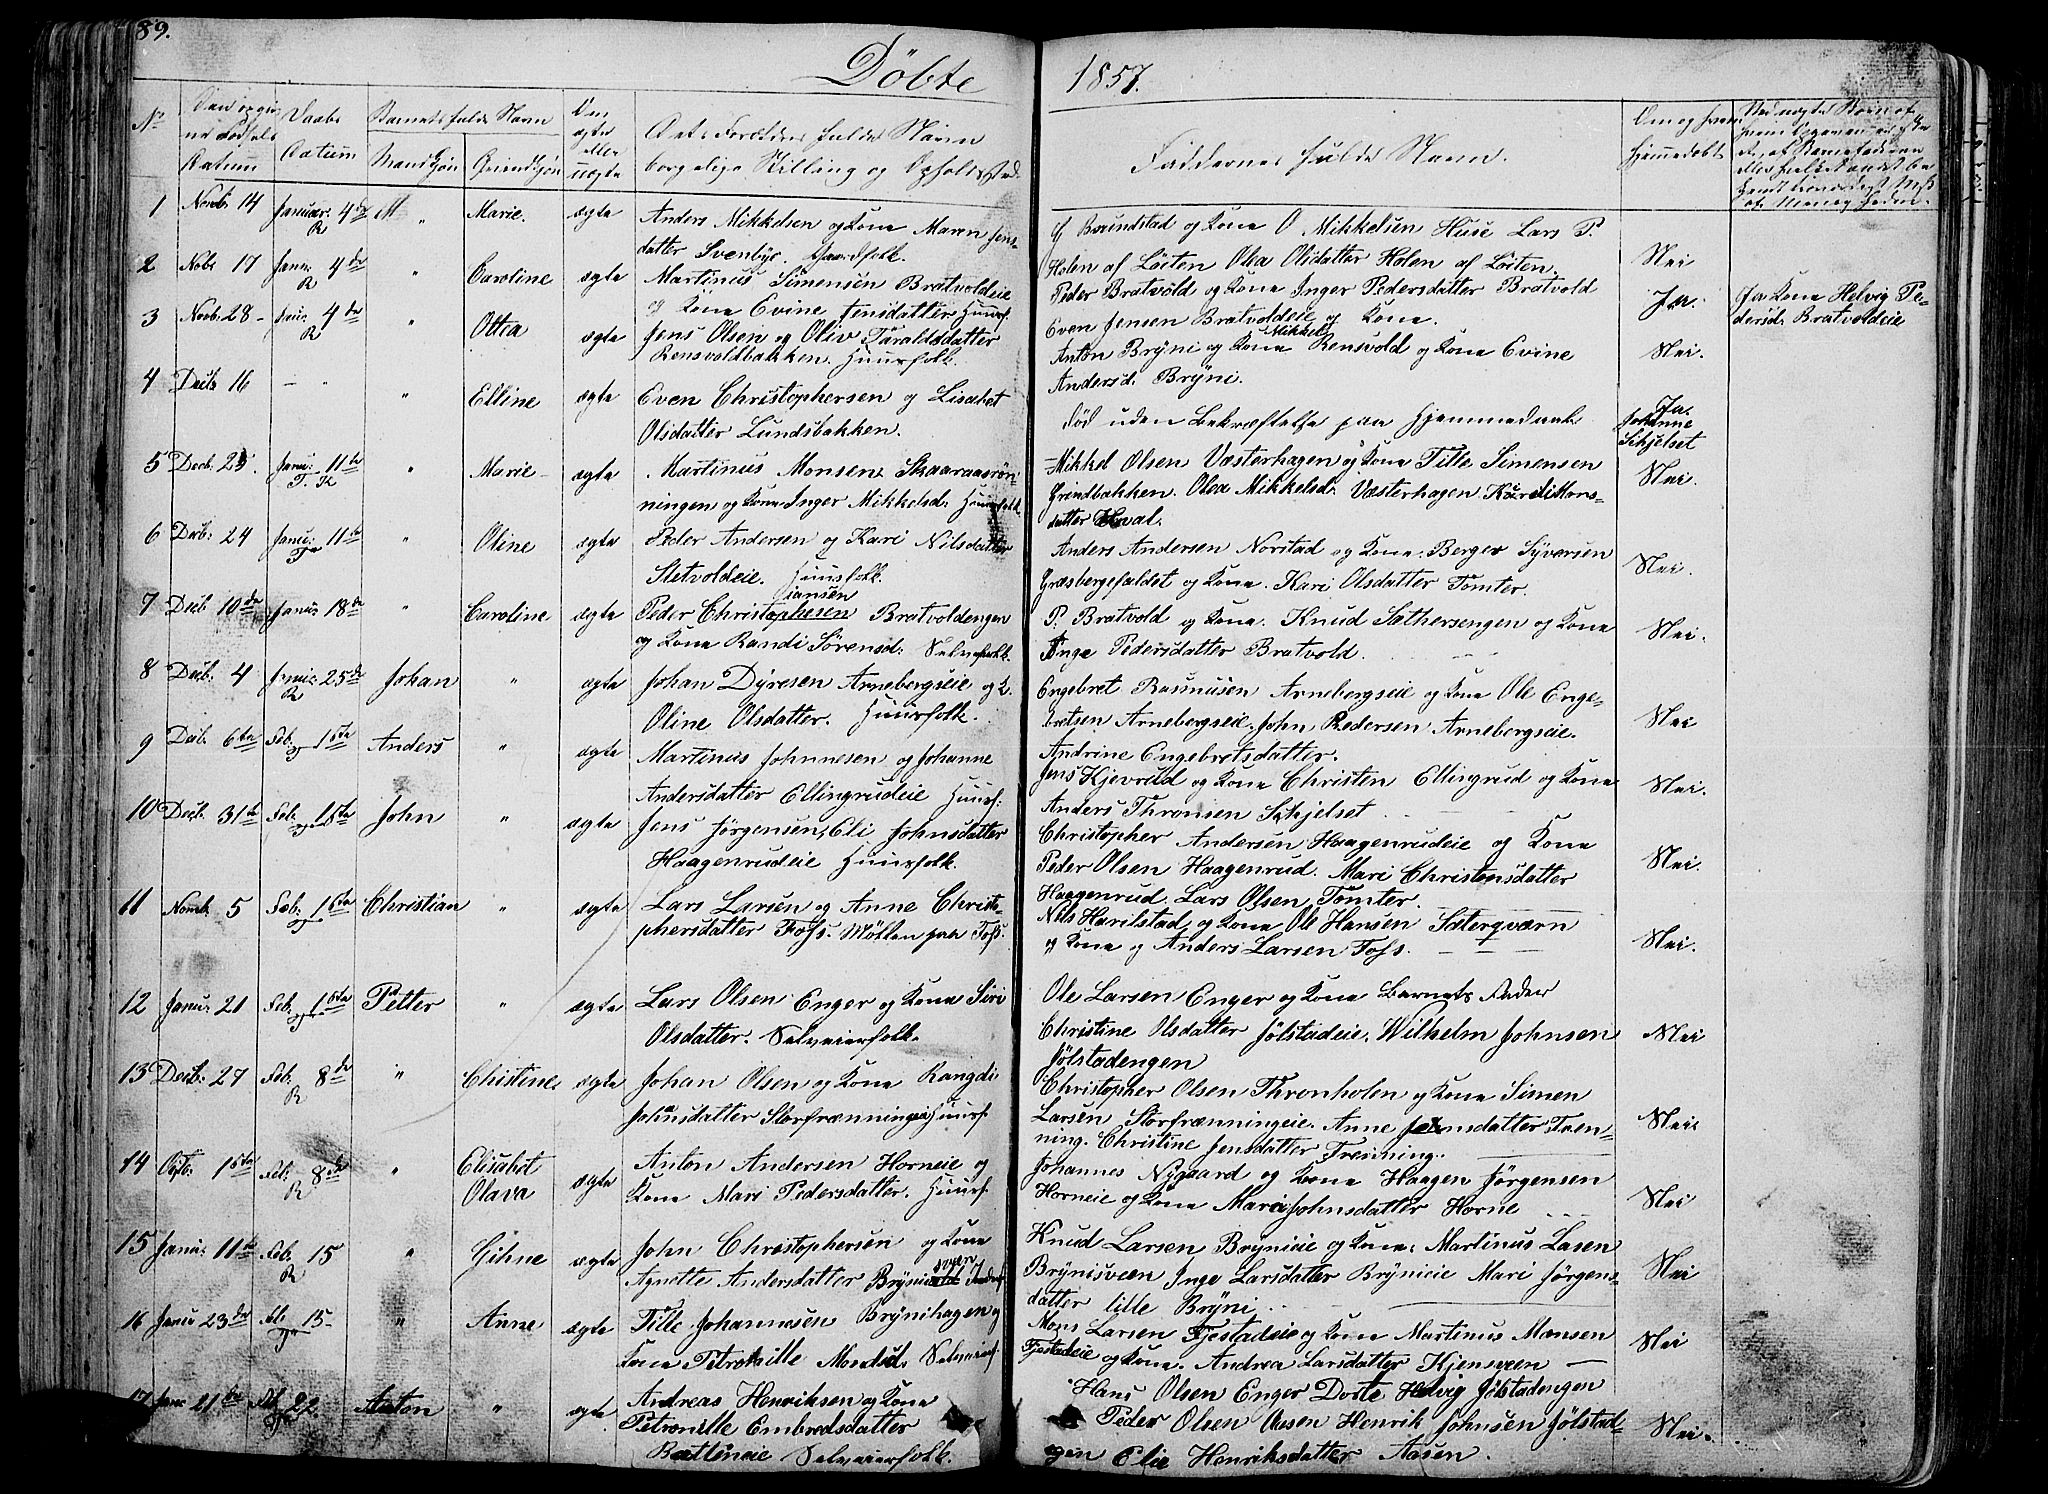 89.
Döbte 1857.
No
Datum
Daabs
Datum
Barnets fulde Navn
Mandkjøn
Qvindekjøn
Om
ægte
eller
uægte
Det. Forældres fulde Navn
borgelige Stilling og Opholdssted.
Faddernes fulde Navn.
hjemmedöbt
1 Novb. 14 Januar. 4de R " Marie. ægte Anders Mikkelsen og Kone Maren Jens-
datter Svenbye. Gaardfolk.
Brundstad og Kone O Mikkelsen Huse Lars P.
Holen af Löiten Olea Olsdatter Holen af Löiten.
Nei
2 Nobr 17 Janu: 4de R " Caroline ægte Martinus Simensen Bratvoldeie
og Kone Evine Jensdatter Huusf.
Peder Bratvold og Kone Inger Pedersdatter Bratvold
Even Jensen Bratvoldeie og Kone.
Ja. Ja Kone Helvig Pe-
dersd. Bratvoldeie
3 Novb. 28 4de R " Ottea ægte Jens Olsen og Oliv Taraldsdatter
Rensvoldbakken. Huusfolk.
Anton Bryni og Kone Mikkel Rensvold og Kone Evine
Andersd. Bryni.
Nei.
4 Decbr 16 — " " Elline ægte Even Christophersen og Lisabet
Olsdatter Lundsbakken.
död uden Bekræftelse paa Hjemmedaab
Ja.
Johanne
Schjelset
5 Decb. 25. Janu: 11te " Marie ægte Martinus Monsen Skaaraasrøn
ningen og Kone Inger Mikkelsd. Huusfolk.
Mikkel Olsen Væsterhagen og Kone Tille Simensen
Grindbakken. Olea Mikkelsd. Væsterhagen Kari Mons-
datter Hval.
Nei.
6 Decb: 24 Janu: 11te " Oline ægte Peder Andersen og Kari Nilsdatter
Stetvoldeie. Huusfolk.
Anders Andersen Norstad og Kone. Berger Syversen
Græsbergefaldet og Kone. Kari Olsdatter Tomter.
Nei.
7 Decb 10de Janu: 18de " Caroline ægte Peder Christophesen iansen Bratvoldengen
og Kone Randi Sörensd. Selveierfolk.
P. Bratvold og Kone. Knud Sæthersengen og Kone
Inge Pedersdatter Bratvold.
Nei.
8 Decb. 4 Janu: 25de R Johan " ægte Johan Dyresen Arnebergseie og K.
Oline Olsdatter. Huusfolk.
Engebret Rasmusen Arnebergseie og Kone Ole Enge-
bretsen Arnebergseie. John Pedersen Arnebergseie.
Andrine Engebretsdatter.
Nei
9 Decb. 6te Feb: 1ste Anders " ægte Martinus Johnnesen og Johanne
Andersdatter Ellingrudeie Huusf:
Jens Kjevrud og Kone Christen Ellingrud og Kone
Anders Thronsen Schjelset
Nei.
10 Decb. 31te Feb: 1ste John " ægte Jens Jørgensen, Eli Johnsdatter
Haagenrudeie Huusfolk.
Christopher Andersen Haagenrudeie og Kone
Peder Olsen Haagenrud. Mari Christensdatter
Haagenrud. Lars Olsen Tomter.
Nei.
11 Novb. 5 Feb: 1ste Christian " ægte Lars Larsen og Anne Christo-
phersdatter Foss. Møllen paa Foss.
Nils Harilstad og Kone Ole Hansen Sæterqværn
og Kone og Anders Larsen Foss.
Nei.
12 Janu: 21 Feb: 1ste Petter " ægte Lars Olsen Enger og Kone Siri
Olsdatter. Selveierfolk.
Ole Larsen Enger og Kone Barnets Fader
Christine Olsdatter Jölstadeie. Wilhelm Johnsen
Jölstadengen
Nei
13 Decb: 27 Feb. 8de R " Christine ægte Johan Olsen og Kone Rangdi
Johnsdatter Storfrænningeie Huusf.
Christopher Olsen Thronholen og Kone Simen
Larsen Storfrænningeie. Anne Jensdatter Fræn-
ning. Christine Jensdatter Frænning.
Nei
14 Octb. 16te Feb: 8de R " Elisabet
Olava ægte Anton Andersen Horneie og
Kone Mari Pedersdatter. Huusf.
Johannes Nygaard og Kone Haagen Jørgensen
Horneie og Kone Mari Johnsdatter Horne
Nei
15 Janu: 11te Feb. 15 R " Gihne ægte John Christophersen og Kone
Agnette Andersdatter Brynie sveen
Knud Larsen Brynieie og Kone. Martinus Lasen
Brynisveen Inge Larsdatter Brynieie Mari Jørgens-
datter lille Bryni
Nei
16 Janu 23de Feb. 15 " Anne ægte Tille Johannesen Brynihagen og
Kone Petronille Monsd. Selveierf.
Mons Larsen Fjestadeie og Kone Martinus Monsen
Fjestadeie og Kone. Andrea Larsdatter Kjensveen —
Nei
17 Janu 21te Feb. 22 Anton " ægte. Andreas Henriksen og Kone
Petronille Embredsdatter
Selveierfolk.
Hans Olsen Enger Dorte Helvig Jölstadengen
Peder Olsen Aasen Henrik Johnsen Jölstad-
gen Elie Henriksdatter Aasen.
Nei.